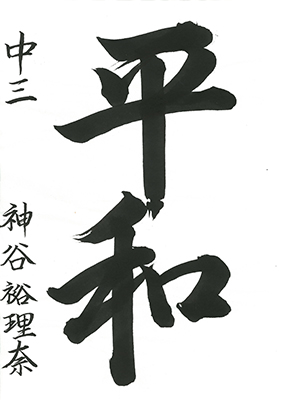 平和
中三 神谷裕理奈